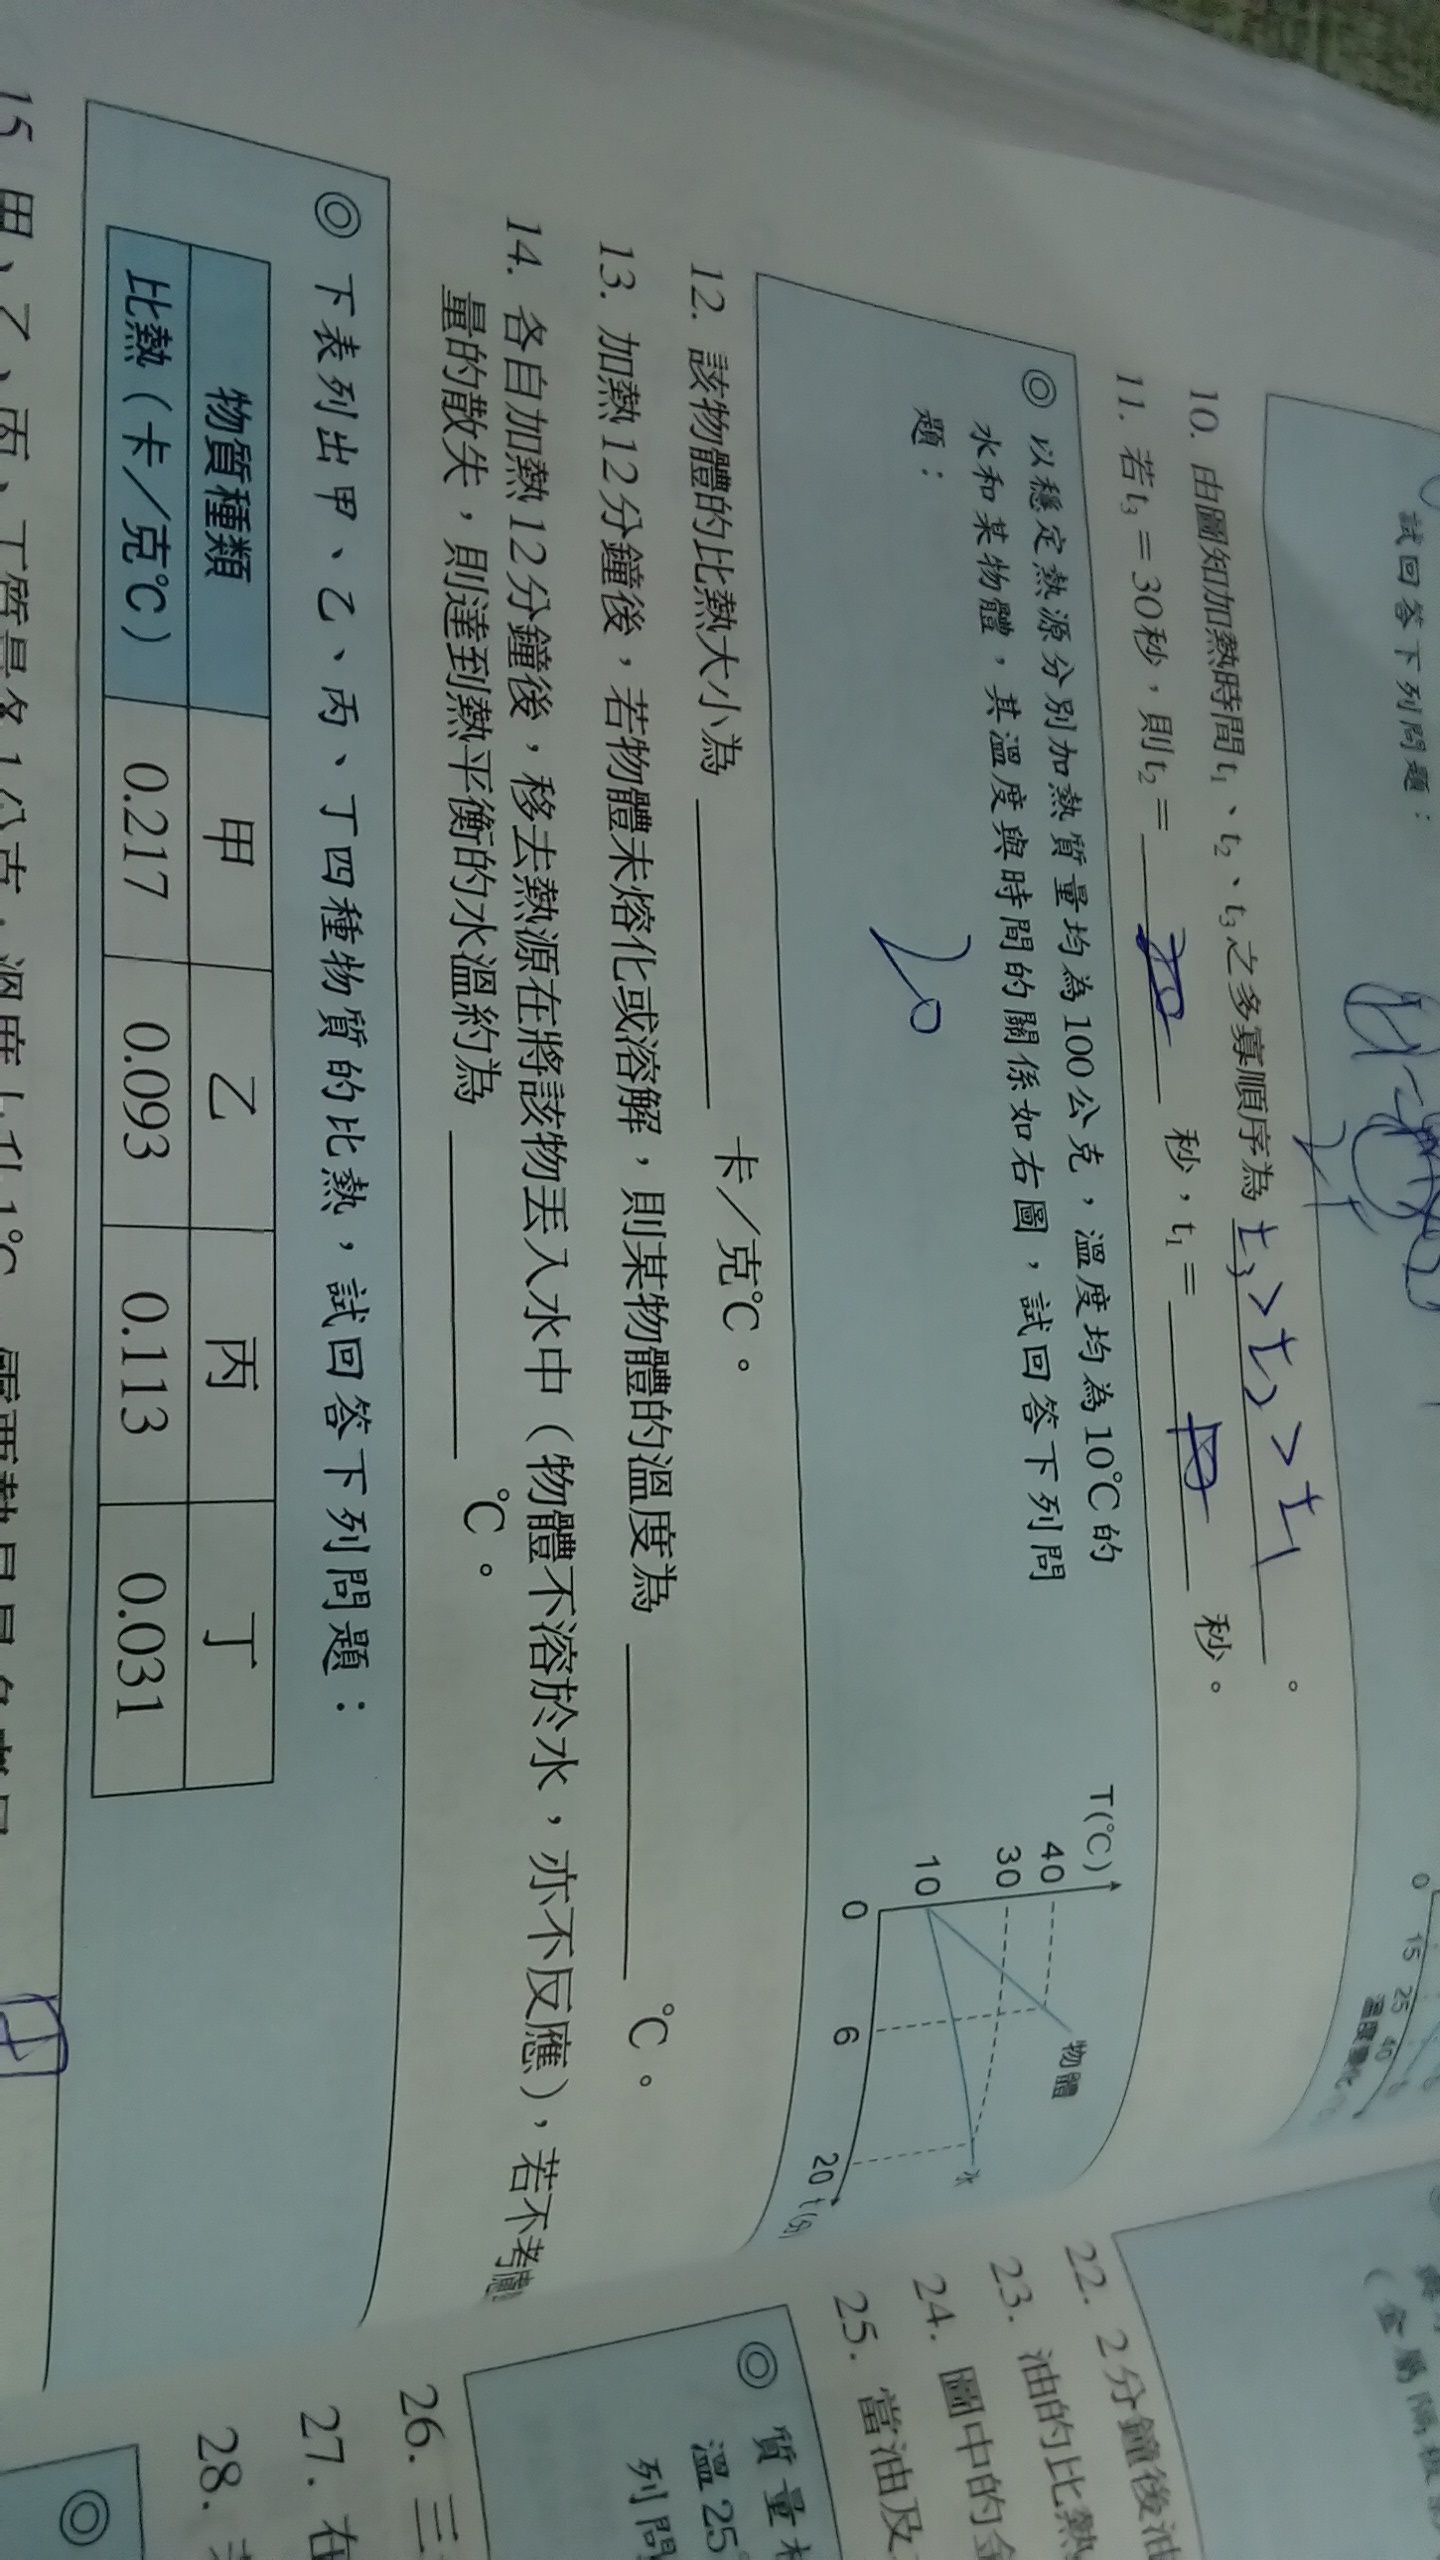 試回答下列問題：
10. 由圖知加熱時間t₁、t₂、t₃之多寡順序為 t₃>t₂>t₁ 。
11. 若t₃＝30秒，則t₂＝ 秒，t₁＝ 秒。
0 15 25 40
溫度變化
◎ 以穩定熱源分別加熱質量均為100公克，溫度均為10℃的
水和某物體，其溫度與時間的關係如右圖，試回答下列問
題：
T(℃)
40
30
10
0 6 20 t(分)
物體
水
12. 該物體的比熱大小為 ＿＿＿ 卡／克℃。
13. 加熱12分鐘後，若物體未熔化或溶解，則某物體的溫度為 ＿＿＿ ℃。
14. 各自加熱12分鐘後，移去熱源在將該物丟入水中（物體不溶於水，亦不反應），若不考慮熱
量的散失，則達到熱平衡的水溫約為 ＿＿＿ ℃。
◎ 下表列出甲、乙、丙、丁四種物質的比熱，試回答下列問題：
物質種類 甲 乙 丙 丁
比熱（卡／克℃） 0.217 0.093 0.113 0.031
15. 甲、乙、丙、丁質量各1公克，溫度上升1℃，
22. 2分鐘後油
23. 油的比熱
24. 圖中的金
25. 當油及
◎ 質量
溫25°
列問
26. 三
27. 在
28.
◎